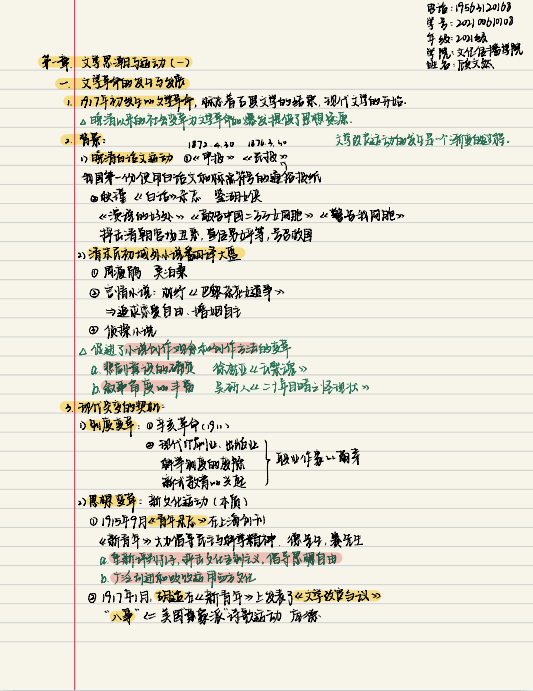 电话:19563120168
学号:202100610108
年级:2021级
学院:文化传播学院
姓名:
第一章 文学思潮与运动(一)
一、文学革命的发生与发展
1. 1917年初发生的文学革命,标志着古典文学的结束,现代文学的开始.
△晚清以来的社会变革为文学革命的爆发提供了思想资源.
2. 背景: 1872.4.30 1876.3.30 文学改良运动的发生是一个渐变的过程.
1)晚清白话文运动 ①《申报》《民报》
我国第一份使用白话文和标点符号的通俗报纸
②秋瑾《白话》杂志 鉴湖女侠
《演说的好处》《敬告中国二万万女同胞》《警告我同胞》
抨击清朝官场丑恶,宣传男女平等,号召救国
2)清末民初域外小说翻译大盛
① 周瘦鹃 吴泊秉
② 言情小说:林纾《巴黎茶花女遗事》
⇒追求恋爱自由、婚姻自主
③ 侦探小说
△ 促进了小说创作观念和创作方法的变革
a. 悲剧意识的确立 徐枕亚《玉梨魂》
b. 叙事角度的丰富 吴研人《二十年目睹之怪现状》
3. 现代文变的契机:
1)制度变革:①辛亥革命(1911)
② 现代印刷业、出版业
科举制度的废除
新式教育的兴起
职业作家的萌芽
2)思想变革:新文化运动(本质)
① 1915年9月《青年杂志》在上海创刊
《新青年》大力倡导民主与科学精神. 德先生,赛先生
a. 重新评判孔子,抨击文化专制主义,倡导思想自由
b. 广泛引进和吸收西方文化
② 1917年1月,胡适在《新青年》上发表了《文学改良刍议》
"八事" ⇐ 美国"意象派"诗歌运动 庞德